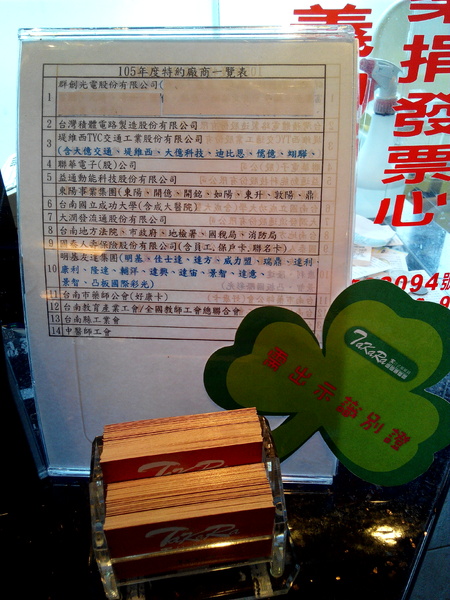 105年度特約廠商一覽表
1 群創光電股份有限公司(
2 台灣積體電路製造股份有限公司
3 堤維西TYC交通工業股份有限公司
(含大億交通、堤維西、大億科技、迪比恩、儒億、翊驊、
4 聯華電子(股)公司
5 益通動能科技股份有限公司
東陽事業集團(東陽、開億、開銘、如陽、東升、敦陽、鼎
6 台南國立成功大學(含成大醫院)
7 大潤發流通股份有限公司
8 台南地方法院、市政府、地檢署、國稅局、消防局
9 國泰人壽保險股份有限公司(含員工,保戶卡,聯名卡)
明基友達集團(明基、佳世達、達方、威力盟、瑞鼎、達利
10 康利、隆達、輔祥、達興、達宙、景智、達意、
景智、凸板國際彩光)
11 台南市藥師公會(好康卡)
12 台南教育產業工會/全國教師工會總聯合會
13 台南縣工業會
14 中醫師工會
義
捐發票
心
2094號
TaKaRa
需出示識別證
TaKaRa
TaKaRa